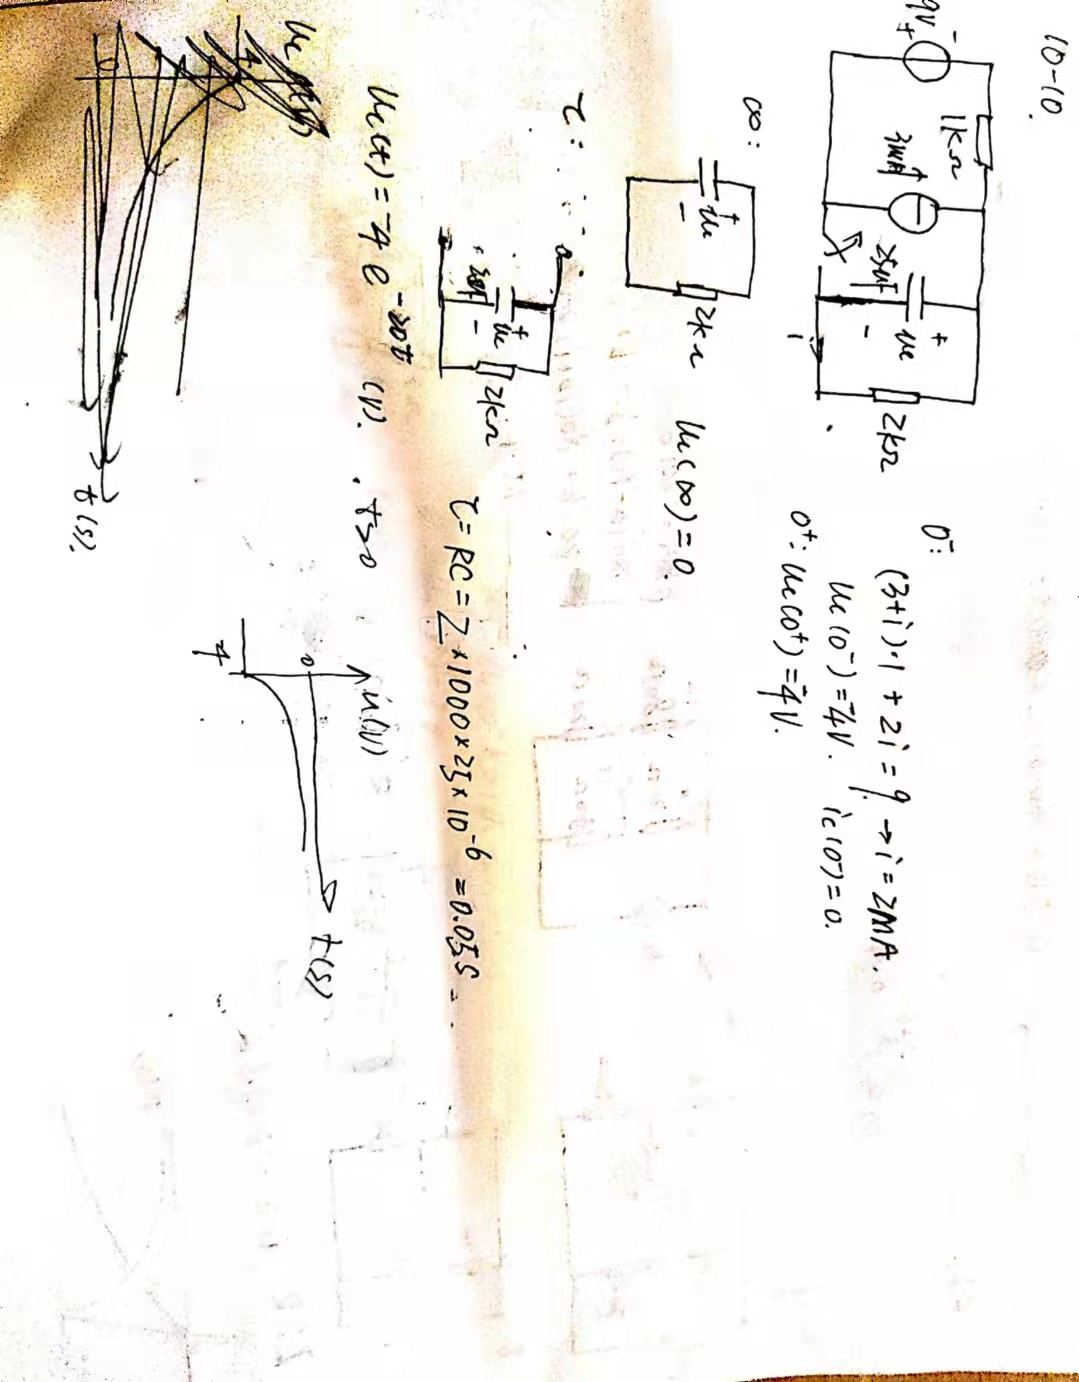 10-10.
9V
- +
1kΩ
3mA
25μF
+
uc
-
i
2kΩ
0⁻:
(3+i)·1 + 2i = 9 → i = 2MA.
uc(0⁻) = -4V. ic(0⁻) = 0.
0⁺: uc(0⁺) = -4V.
∞:
+
uc
-
2kΩ
uc(∞) = 0.
τ:
+
uc
-
2kΩ
τ = RC = 2 × 1000 × 25 × 10⁻⁶ = 0.05S
uc(t) = -4 e^-20t (V). t>0
uc
0
t(s).
u(V)
0
-4
t(s)